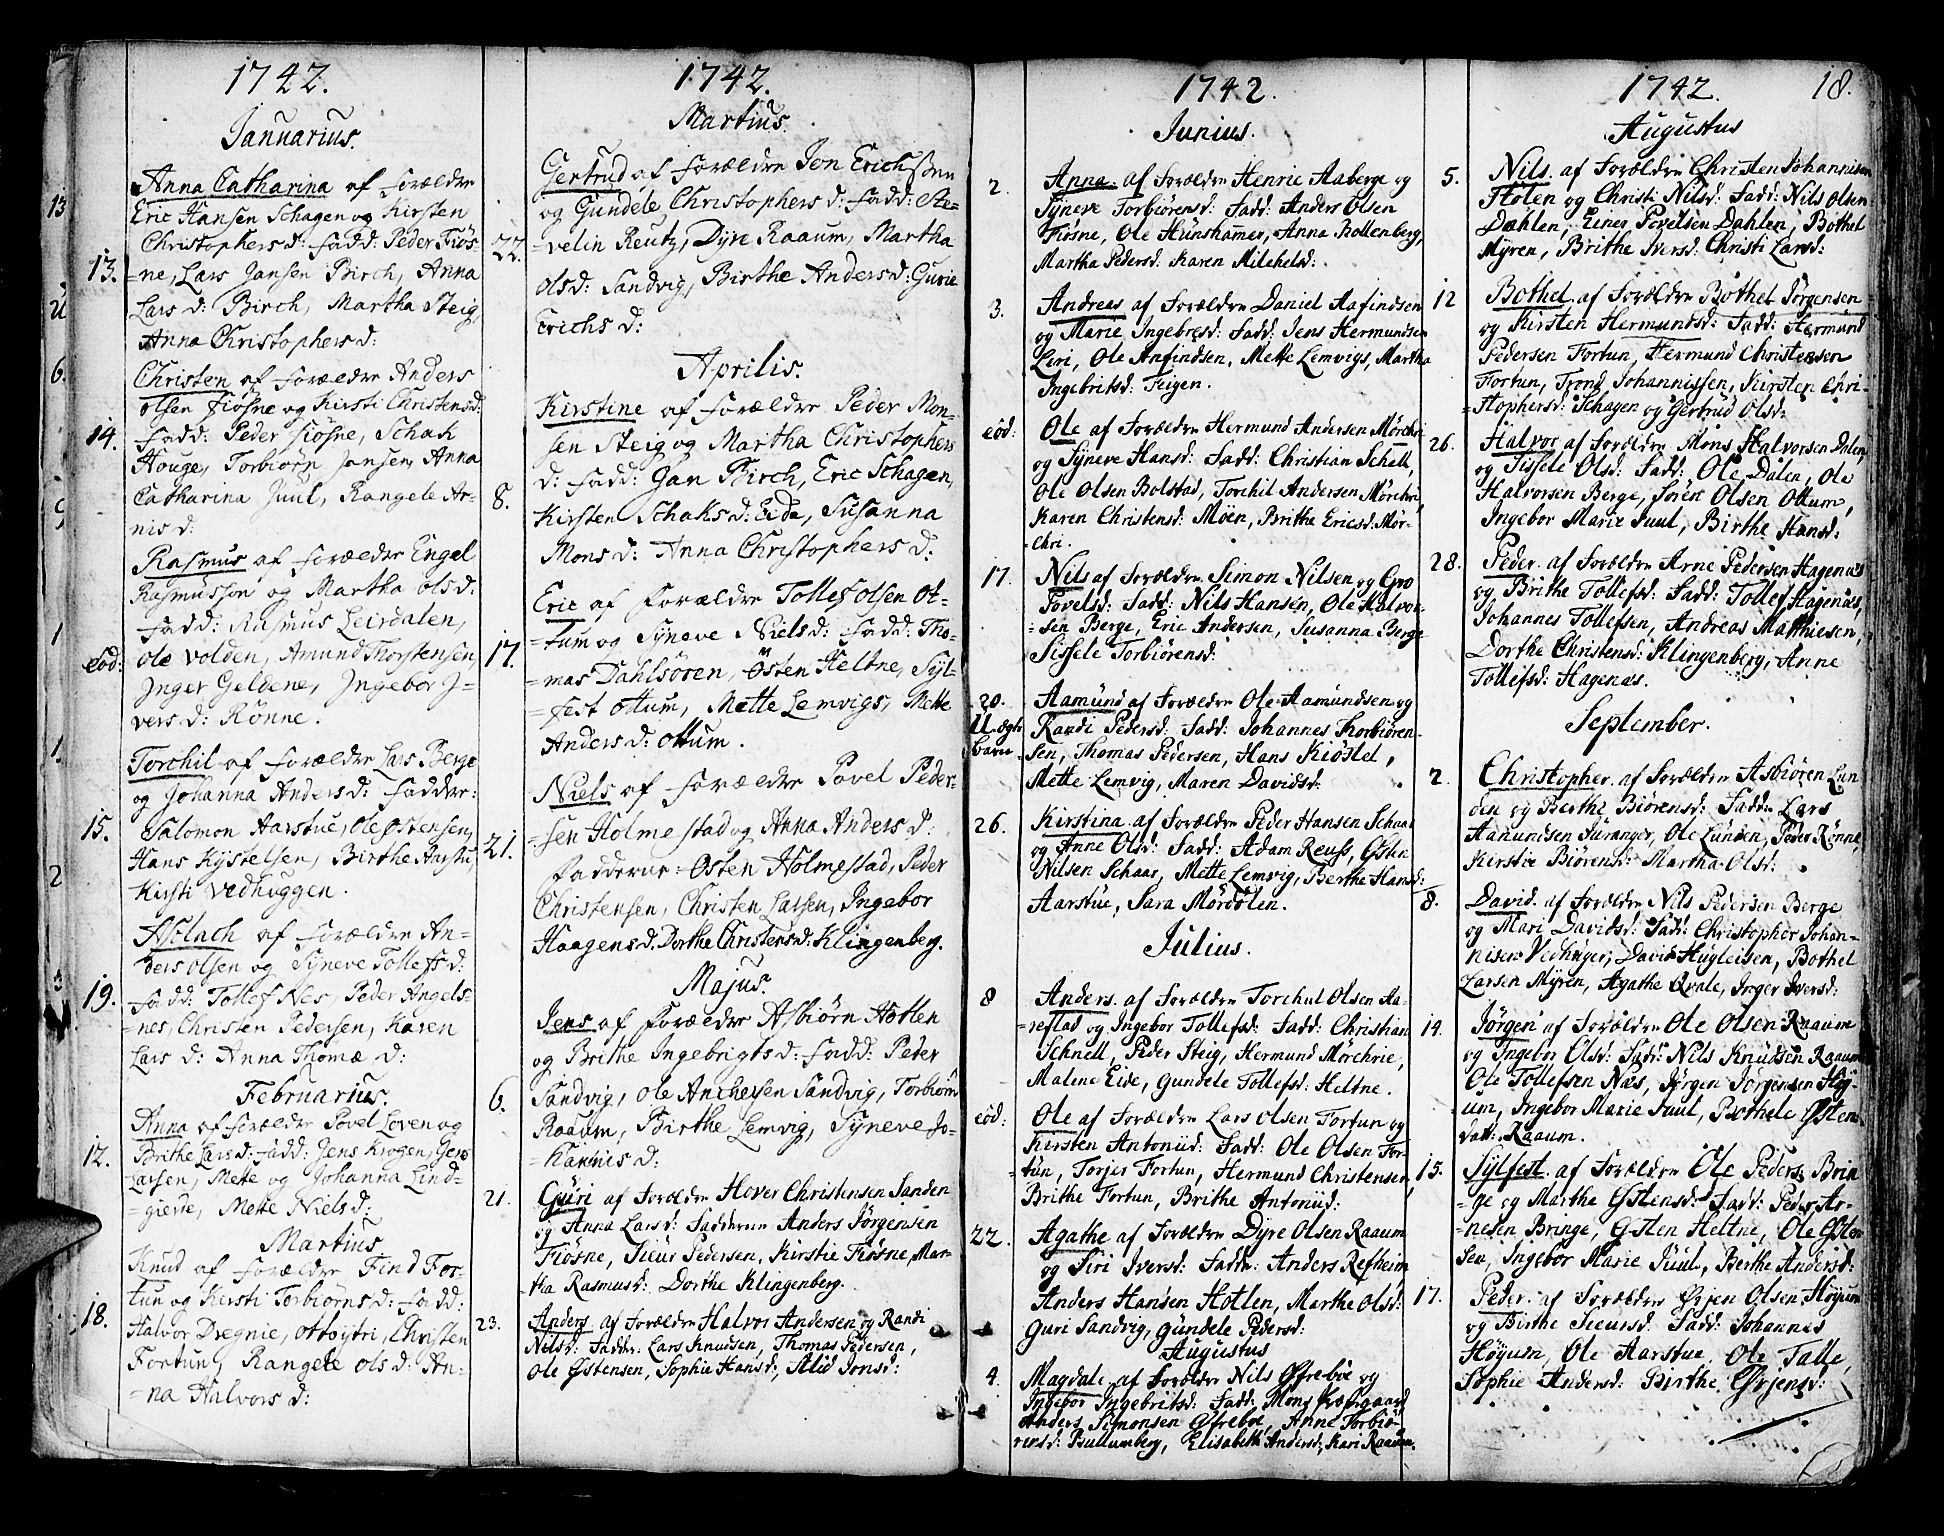 1742.
Januarius.
Anna Catharina af forældre
Eric Hansen Schagen og Kirsten
Christophersd: fadd: Peder Fiös-
13. =ne, Lars Jansen Birch, Anna
Lars d: Birch, Martha Steig,
Anna Christophersd:
Christen af forældre Anders
olsen Fiøsne og Kirsti Christensd:
14. fadd: Peder Fiøsne, Schak
Houge, Torbiørn Jansen, Anna
Catharina Juul, Rangele Ar-
nis d:
Rasmus af forældre Engel
Rasmussøn og Martha olsd:
fadd: Rasmus Leirdalen,
eod: ole Volden, Amund Thorstensen,
Inger Geldene, Ingebor J-
vers d: Rønne.
Torchil af forældre Lars Berge
og Johanna Anders d: fadder:
15. Salomon Aarstue, ole østensen,
Hans Kystelsen, Birthe Aarstu,
Kirsti Vedhuggen.
Aslach af forældre An-
ders olsen og Syneve Tollefs d:
19. fadd: Tollef Nes, Peder Angels-
=nes, Christen Pedersen, Karen
Lars d: Anna Thomæ d:
Februarius.
Anna af forældre Povel Loven og
12. Brithe Larsd: fadd: Jens Krogen, Gero
Larsen, Mette og Johanna Lind-
=gierde, Mette Niels d:
Martius
Knud af forældre Find For-
tun og Kirsti Torbiørns d: fadd:
18. Halvor Dregnie, otto ytri, Christen
Fortun, Rangele ols d: An-
=na Halvors d:
1742.
Martius.
Gertrud af forældre Jon Erichsøn
og Gundele Christophers d: fadd: Ae-
22. =velin Reutz, Dyre Raaum, Martha
olsd: Sandvig, Birthe Anders d: Gurie
Erichs d:
Aprilis.
Kirstine af forældre Peder Mon-
sen Steig og Martha Christophers
d: fadd: Jan Birch, Eric Schagen,
8. Kirsten Schaks d: Eide, Susanna
Mons d: Anna Christophers d:
Eric af forældre Tollef olsen ot-
17. =tum og Syneve Niels d: fadd: Tho-
=mas Dahlsören, Östen Heltne, Syl-
=fest ottum, Mette Lemvigs, Mette
Anders d: ottum.
Niels af forældre Povel Peder-
21. =sen Holmestad og Anna Anders d:
fadderne østen Holmestad, Peder
Christensen, Christen Larsen, Ingebor
Haagens d. Dorthe Christensd: Klingenberg.
Majus.
Jens af forældre Asbiørn Hotlen
og Brithe Ingebrigts d: fadd: Peder
6. Sandvig, ole Anchersen Sandvig, Torbiørn
Raaum, Birthe Lemvig, Syneve Jo-
=hannis d:
21. Guri af Forældre Hover Christensen Sanden
og Anna Lars d: Fadderne Anders Jörgensen
Fiøsne, Sieur Pedersen, Kirstie Fiøsne, Mar-
tha Rasmusd: Dorthe Klingenberg.
23. Anders af Forældre Halvor Andersen og Randi
Nilsd: Fadder: Lars Knudsen, Thomas Pedersen,
Ole Østensen, Sophie Hansd: Alid Jonsd:
1742.
Junius.
2. Anna af Forældre Henric Aaberge og
Syneve Torbiörensd: Fadd: Anders Olsen
Fiøsne, Ole Hunshamer, Anna Bollenberg,
Martha Pedersd: Karen Michelsd:
3. Andreas af Forældre Daniel Aafindsen
og Marie Ingebresd: Fadd: Jens Hermundsen
Leri, Ole Anfindsen, Mette Lemvigs, Martha
Ingebritsd: Feigen.
eod: Ole af Forældre Hermund Andersen Mörchri
og Syneve Hansd: Fadd: Christian Schell,
Ole Olsen Bolstad, Torchil Andersen Mörchri,
Karen Christensd: Möen, Brithe Ericsd: Mör-
chri.
17. Nils af Forældre Simon Nilsen og Gro
Povelsd: Fadd: Nils Hansen, Ole Halvor-
=sen Berge, Eric Andersen, Susanna Berge
Sissele Torbiörensd:
20. Aamund af Forældre Ole Aamundsen og
Uægte Randi Pedersd: Fadd: Johannes Thorbiören-
barn sen, Thomas Pedersen, Hans Kiöstel,
Mette Lemvig, Maren Davidsd:
26. Kirstina af Forældre Peder Hansen Schaar
og Anne Olsd: Fadd: Adam Reuss, Østen
Nilsen Schaar, Mette Lemvig, Berthe Hansd:
Aarstue, Sara Mördölen.
Julius.
8 Anders af Forældre Torchul Olsen Aa-
=restad og Ingebor Tollefsd: Fadd: Christian
Schnell, Peder Steig, Hermund Mörchrie,
Malene Eide, Gundele Tollefsd: Heltne.
eod: Ole af Forældre Lars Olsen Fortun og
Kersten Antoniid: Fadd: Ole Olsen For-
=tun, Torjer Fortun, Hermund Christensen,
Brithe Fortun, Brithe Antoniid:
22. Agathe af Forældre Dyre Olsen Raaum
og Siri Iversd: Fadde: Anders Refheim,
Anders Hansen Hotlen, Marthe Olsd:
Guri Sandvig, Gundele Pedersd:
Augustus
4. Magdale af Forældre Nils Øfreböe og
Ingebor Ingebritsd: Fadd: Mons
Anders Simonsen Øfreboe, Anne Torbiö-
rensd: Bullumberg, Elisabeth Andersd: Kari Raaum.
1742. 18.
Augustus
5. Nils af Forældre Christen Johannisen
Holen og Christi Nilsd: Fadd: Nils Olsen
Dahlen, Einer Povelsen Dahlen, Bothel
Myren, Brithe Iversd: Christi Larsd:
12 Bothel af Forældre Bothel Jörgensen
og Kirsten Hermundsd: Fadd: Hermund
Pedersen Fortun, Hermund Christensen
Fortun, Trond Johannissen, Kirsten Chri-
=stophersd: Schagen og Gertrud Olsd:
26. Halvor af Forældre Mons Halvorsen Dalen,
og Sissele Olsd: Fadd: Ole Dalen, Ole
Halvorsen Berge, Sören Olsen Ottum,
Ingebor Marie Juul, Birthe Hansd:
28. Peder af Forældre Arne Pedersen Hagenæs
og Brithe Tollefsd: Fadd: Tollef Hagenæs,
Johannes Tollefsen, Andreas Matthiesen,
Dorthe Christensd: Klingenberg, Anne
Tollefsd: Hagenæs.
September.
2. Christopher af Forældre Asbiören Lun-
den og Berthe Biörensd: Fadd: Lars
Aamundsen Furanger, Ole Lunden, Peder Rönne,
Kirstie Biörensd: Martha Olsd:
8. David af Forældre Nils Pedersen Berge
og Mari Davidsd: Fadd: Christopher Johan-
nisen Vedhuger, David Hugleisen, Bothel
Larsen Myren, Agathe Qvale, Inger Iversd:
14. Jörgen af Forældre Ole Olsen Raaum
og Ingebor Olsd: Fadd: Nils Knudsen Raaum
Ole Tollefsen Næs, Jörgen Jörgensen Höy-
um, Ingebor Marie Juul, Bothele Østens
datt: Raaum.
15. Sylfest af Forældre Ole Peders: Brin
=ge og Martha Østensd: Fadd: Peder Ar-
nesen Bringe, Østen Heltne, Ole Østen
sen, Ingebor Marie Juul, Berthe Andersd:
17. Peder af Forældre Ørjen Olsen Höyum
og Birthe Sieursd: Fadd: Johannes
Höyum, Ole Aarstue, Ole Talle,
Sophie Andersd: Birthe Ørjensd: